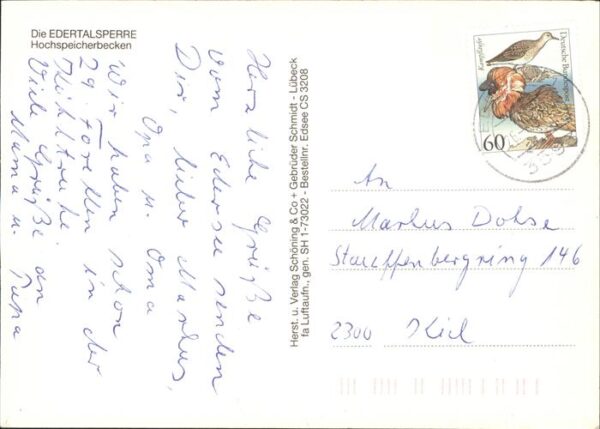 Die EDERTALSPERRE
Hochspeicherbecken
Herzliche Grüße
vom Edersee senden
Dir, lieber Markus,
Opa u. Oma
Wir haben schon
29 Forellen in der
Kühltruhe.
Viele Grüße an
Mama u. Papa
Herst. u. Verlag Schöning & Co + Gebrüder Schmidt - Lübeck
fa Luftaufn., gen. SH 1-73022 - Bestellnr. Edsee CS 3208
Kampfläufer
Deutsche Bundespost
60
An
Markus Dohse
Stauffenbergring 146
2300 Kiel